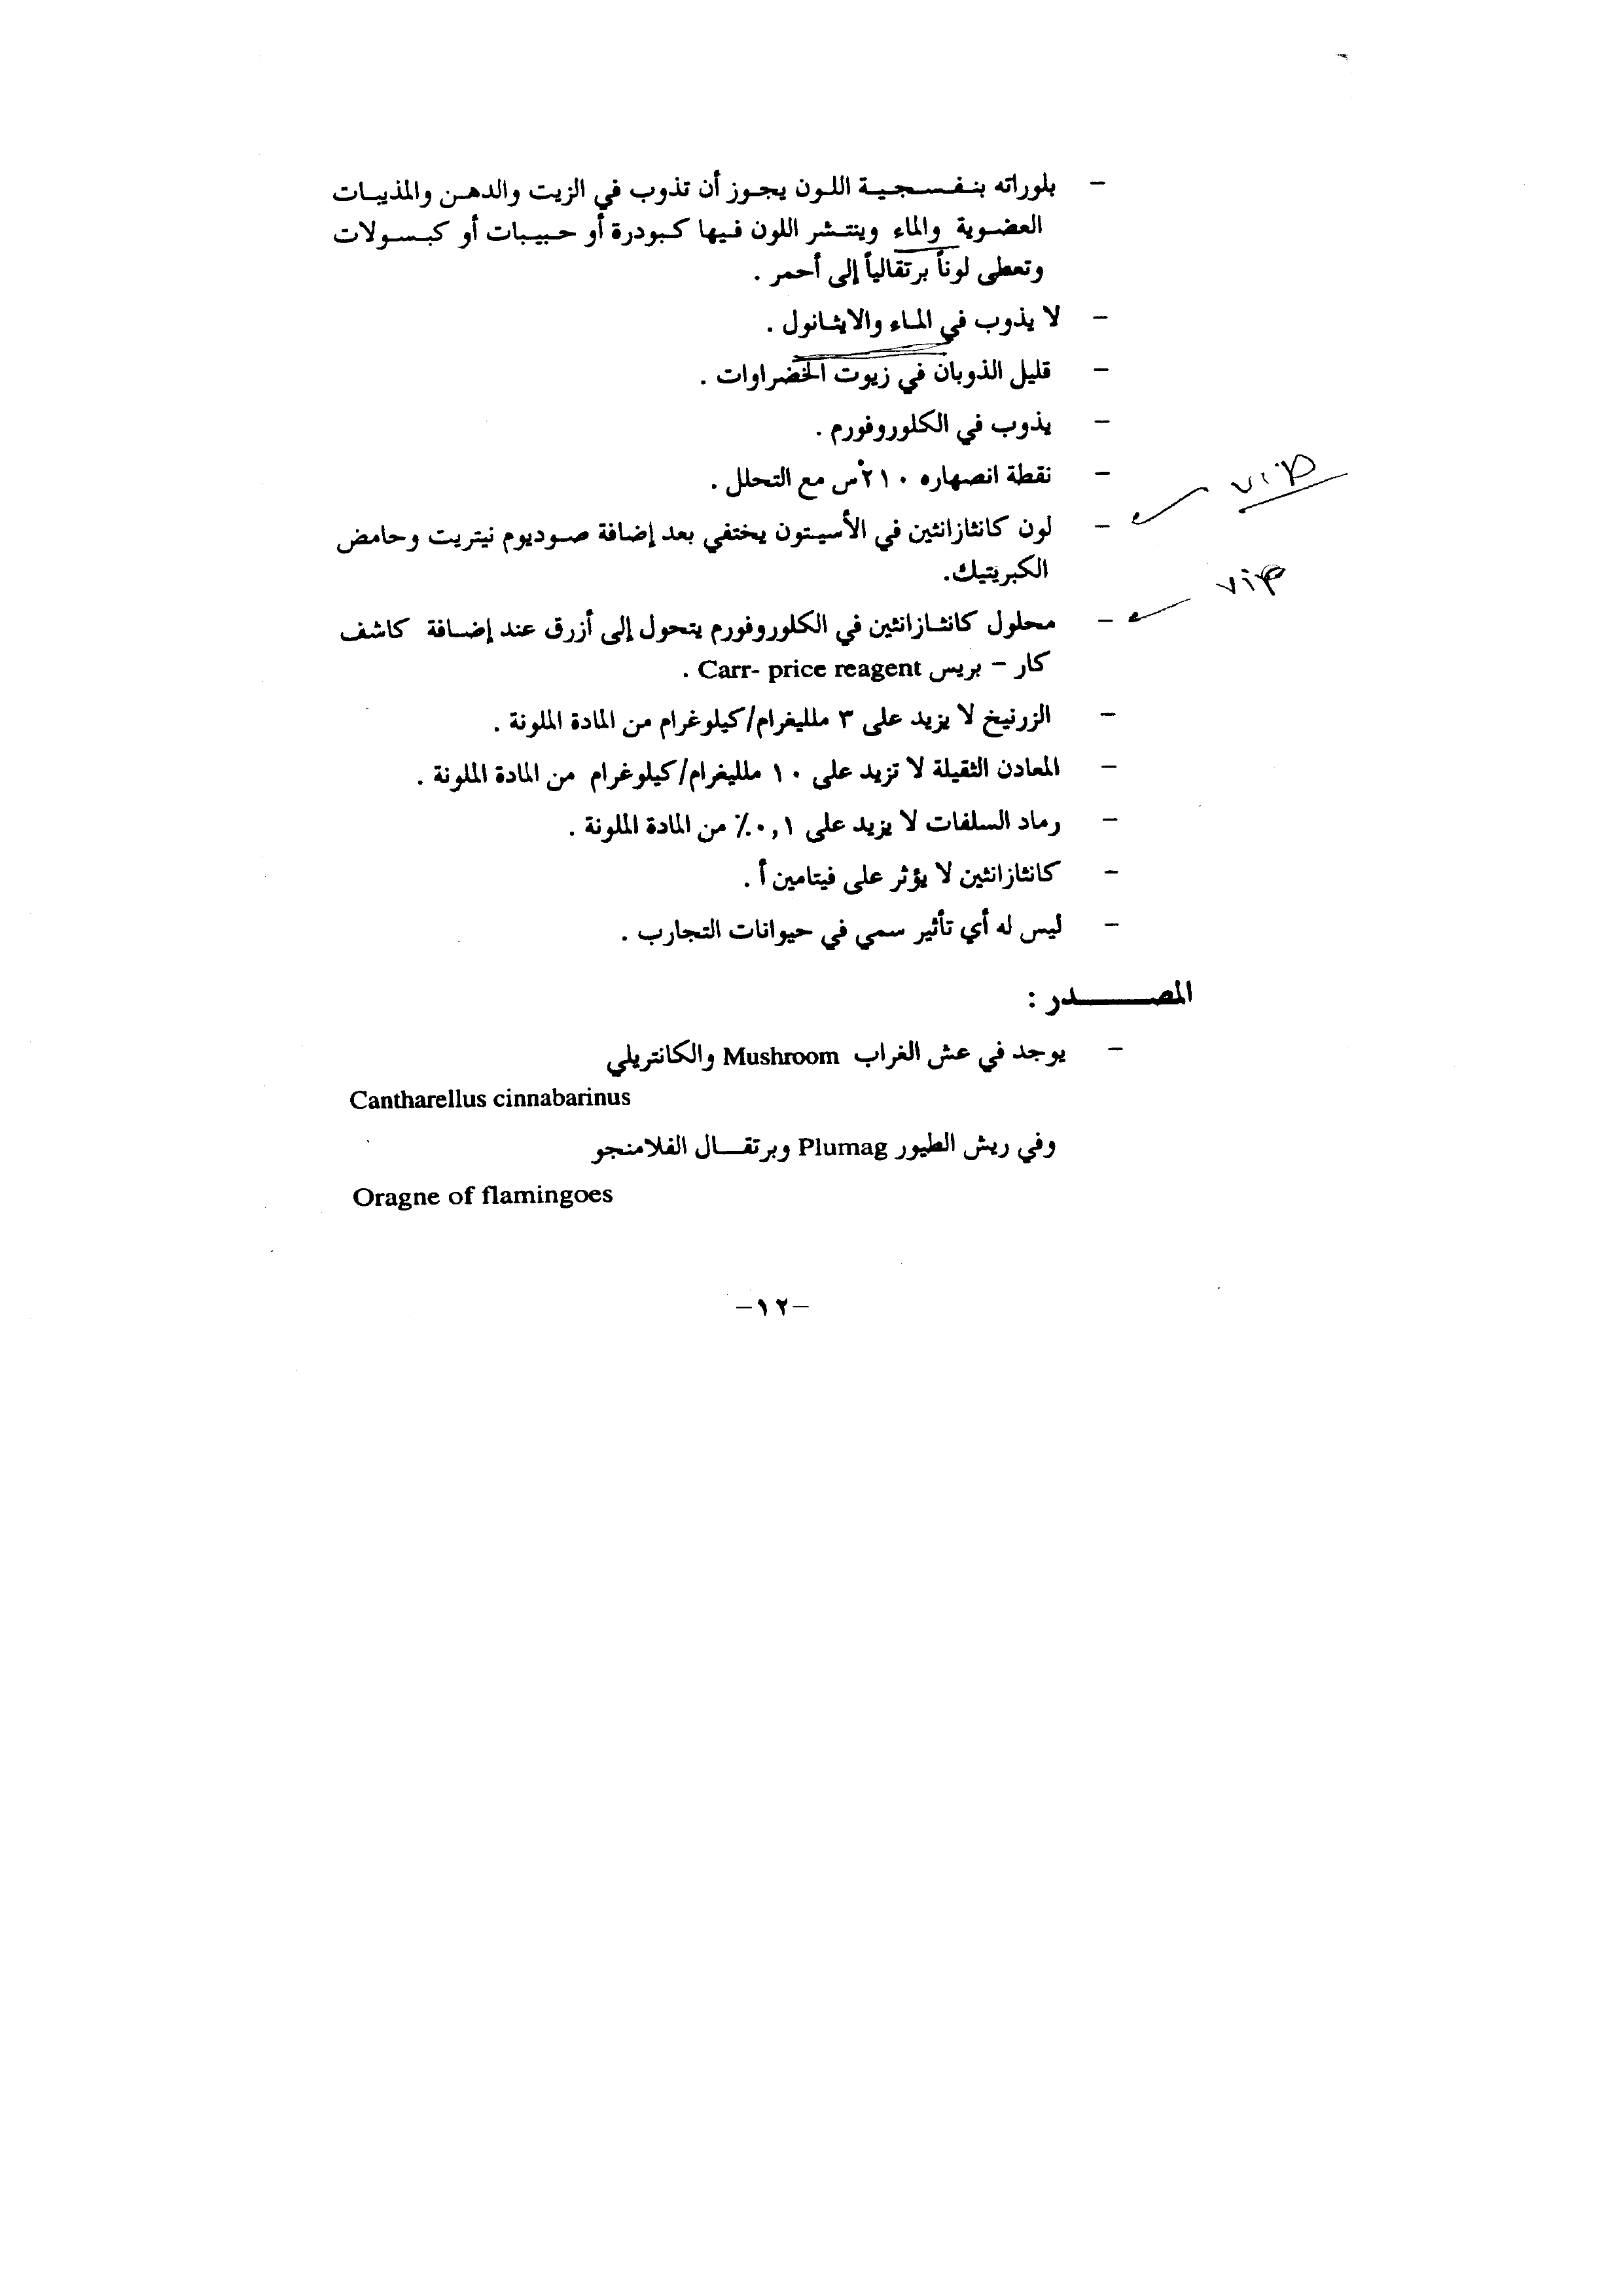 - بلوراته بنفسجية اللون يجوز أن تذوب في الزيت والدهن والمذيبات
العضوية والماء وينتشر اللون فيها كبودرة أو حبيبات أو كبسولات
وتعطى لوناً برتقالياً إلى أحمر .
- لا يذوب في الماء والايثانول .
- قليل الذوبان في زيوت الخضراوات .
- يذوب في الكلوروفورم .
- نقطة انصهاره ٢١٠°س مع التحلل .
vip
- لون كانثازانثين في الأسيتون يختفي بعد إضافة صوديوم نيتريت وحامض
الكبريتيك.
vip
- محلول كانثازانثين في الكلوروفورم يتحول إلى أزرق عند إضافة كاشف
كار - بريس Carr- price reagent .
- الزرنيخ لا يزيد على ٣ ملليغرام/كيلوغرام من المادة الملونة .
- المعادن الثقيلة لا تزيد على ١٠ ملليغرام/كيلوغرام من المادة الملونة .
- رماد السلفات لا يزيد على ٠,١٪ من المادة الملونة .
- كانثازانثين لا يؤثر على فيتامين أ .
- ليس له أي تأثير سمي في حيوانات التجارب .
المصدر :
- يوجد في عش الغراب Mushroom والكانتريلي
Cantharellus cinnabarinus
وفي ريش الطيور Plumag وبرتقال الفلامنجو
Oragne of flamingoes
-١٢-